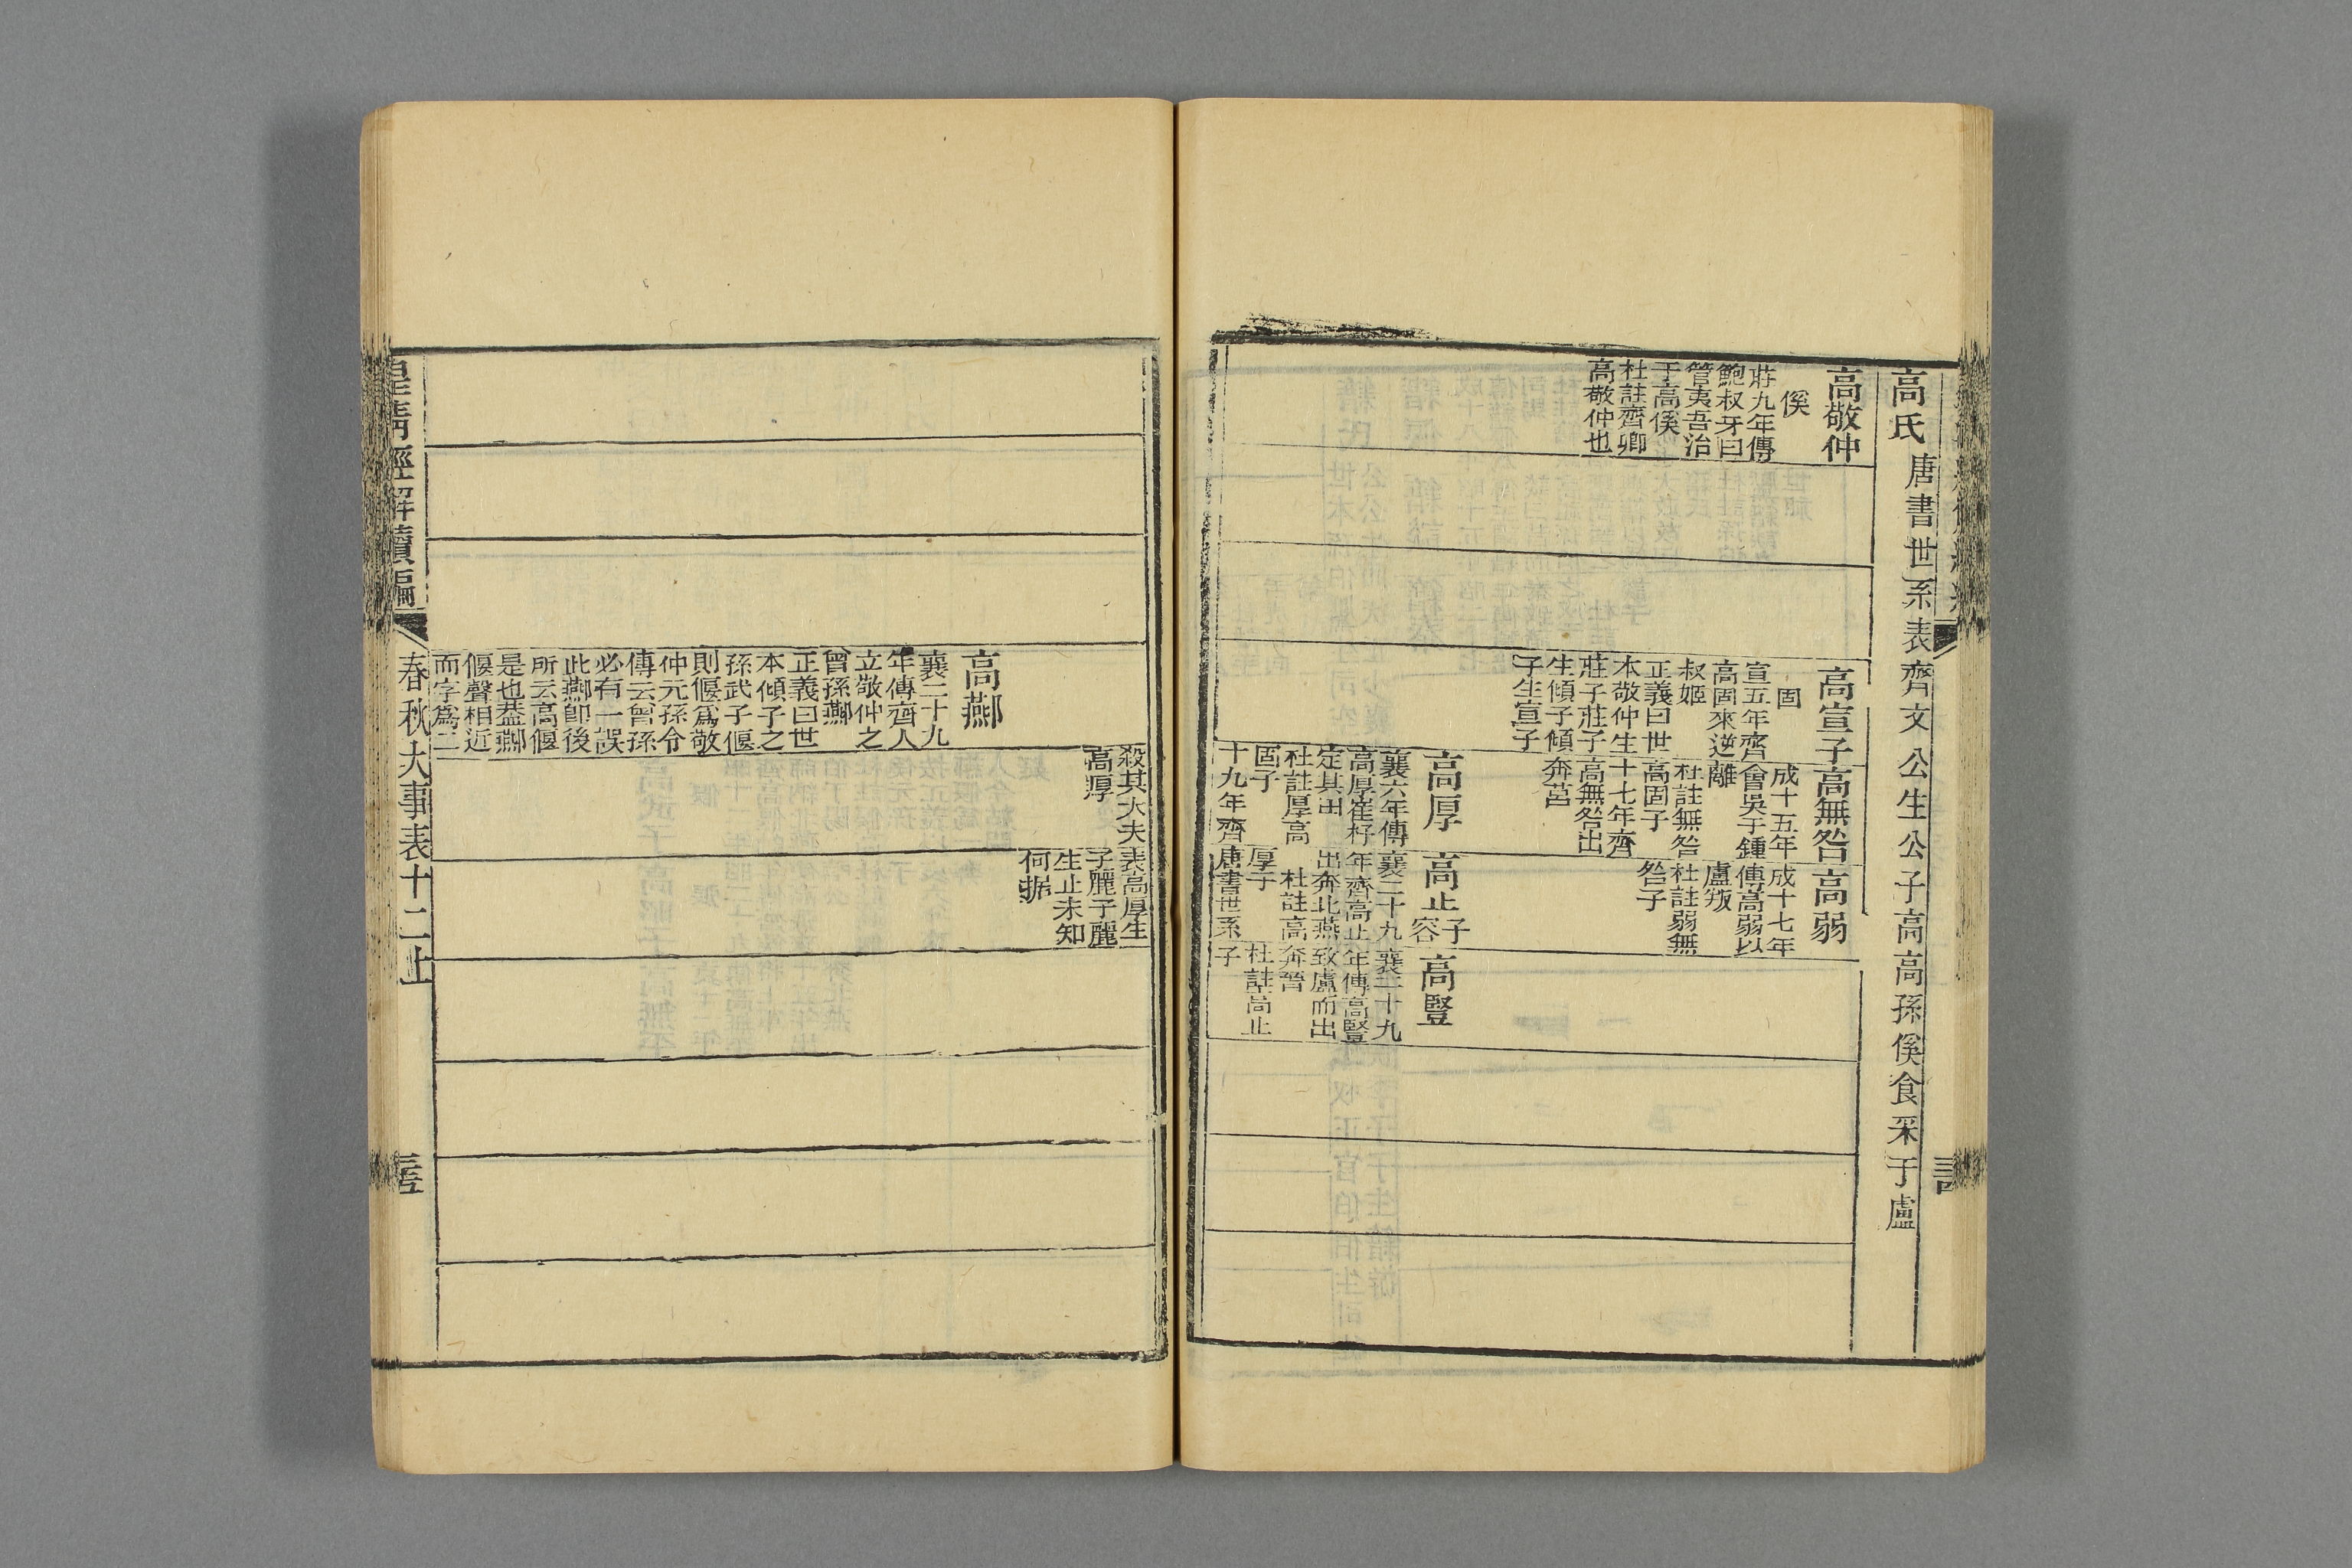 高氏唐書世系表齊文公生公子高高孫傒食采于盧
高敬仲
傒
莊九年傳
鮑叔牙曰
管夷吾治
于高傒
杜註齊卿
高敬仲也
高宣子
固
宣五年齊
高固來逆
叔姬
正義曰世
本敬仲生
莊子莊子
生傾子傾
子生宣子
高無咎
成十五年
會吳于鍾
離
杜註無咎
高固子
十七年齊
高無咎出
奔莒
高弱
成十七年
傳高弱以
盧叛
杜註弱無
咎子
高厚
襄六年傳
高厚崔杼
定其田
杜註厚高
固子
十九年齊
高止子
容
襄二十九
年齊高止
出奔北燕
杜註高
厚子
唐書世系
高豎
襄二十九
年傳高豎
致盧而出
奔晉
杜註高止
子
殺其大夫
高厚
表高厚生
子麗子麗
生止未知
何據
高酀
襄二十九
年傳齊人
立敬仲之
曾孫酀
正義曰世
本傾子之
孫武子偃
則偃爲敬
仲元孫今
傳云曾孫
必有一誤
此酀卽後
所云高偃
是也蓋酀
偃聲相近
而字爲二
皇清經解續編
春秋大事表十二上